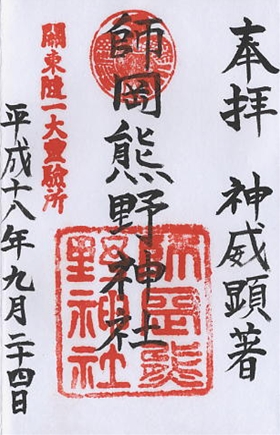 奉拝 神威顕著
師岡熊野神社
師岡熊野神社
関東随一大霊験所
平成十八年九月二十四日